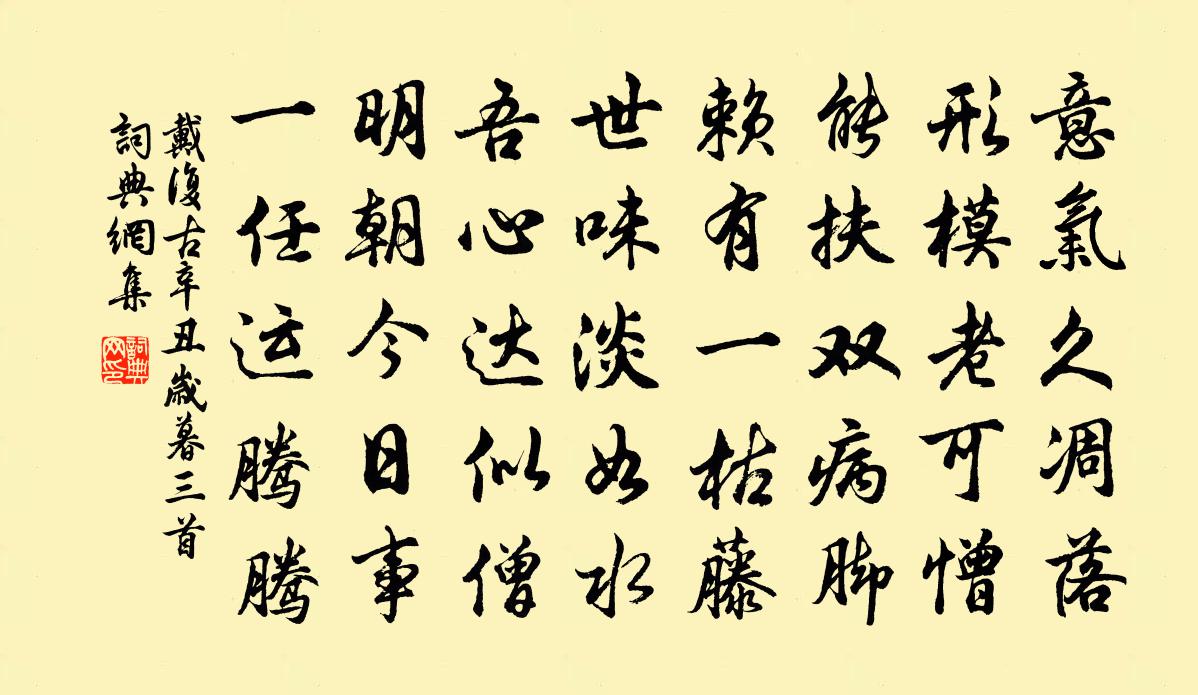 意氣久凋落
形模老可憎
能扶双病脚
赖有一枯藤
世味淡如水
吾心达似僧
明朝今日事
一任运腾腾
戴復古辛丑歲暮三首
詞典網集
詞典網印